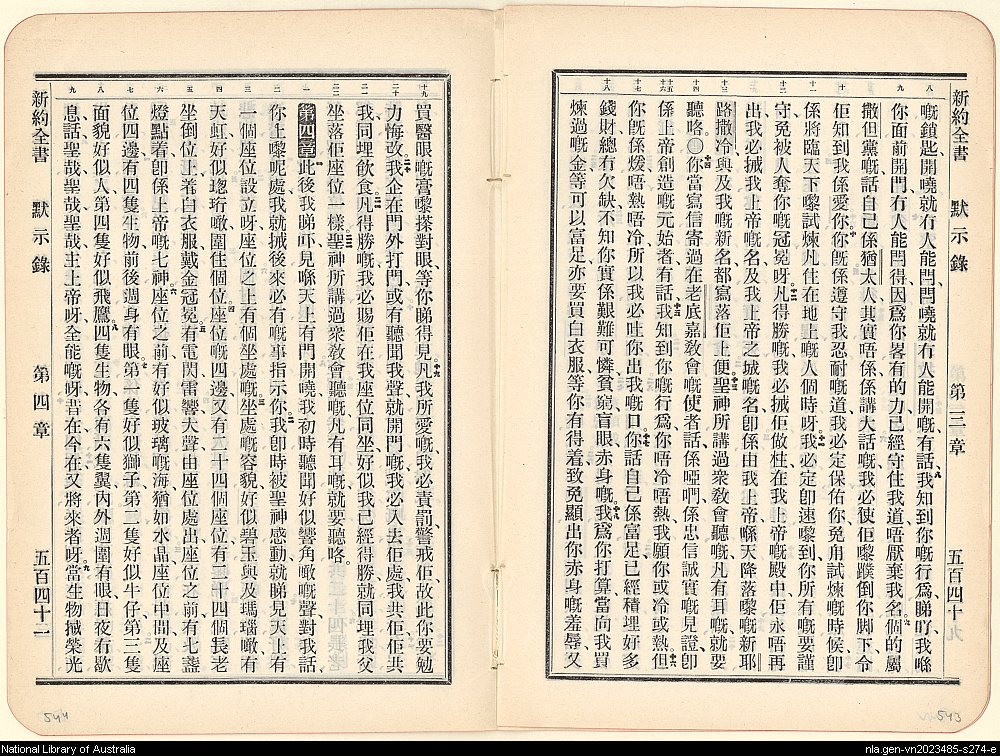 新約全書 默示錄 第三章 五百四十
嘅鎖匙開嘵就冇人能閂閂嘵就冇人能開嘅有話我知到你嘅行爲睇吖我喺
你面前開門冇人能閂得因爲你畧有的力已經守住我道唔厭棄我名個的屬
撒但黨嘅話自己係猶太人其實唔係係講大話嘅我必使佢嚟蹼倒你脚下令
佢知到我係愛你你旣係遵守我忍耐嘅道我必定保佑你免甪試煉嘅時候卽
係將臨天下嚟試煉凡住在地上嘅人個時呀我必定卽速嚟到你所有嘅要謹
守免被人奪你嘅冠冕呀凡得勝嘅我必搣佢做柱在我上帝嘅殿中佢永唔再
出我必搣我上帝嘅名及我上帝之城嘅名卽係由我上帝喺天降落嚟嘅新耶
路撒冷與及我嘅新名都寫落佢上便聖神所講過衆敎會聽嘅凡有耳嘅就要
聽咯〇你當寫信寄過在老底嘉敎會嘅使者話係啞們係忠信誠實嘅見證卽
係上帝創造嘅元始者有話我知到你嘅行爲你唔冷唔熱我願你或冷或熱但
你旣係煖唔熱唔冷所以我必吐你出我嘅口你話自己係富足已經積埋好多
錢財總冇欠缺不知你實係艱難可憐貧窮盲眼赤身嘅我爲你打算當向我買
煉過嘅金等可以富足亦要買白衣服等你有得着致免顯出你赤身嘅羞辱又
543
買醫眼嘅膏嚟搽對眼等你睇得見凡我所愛嘅我必責罰警戒佢故此你要勉
力悔改我企在門外打門或有聽聞我聲就開門嘅我必入去佢處我共佢佢共
我同埋飮食凡得勝嘅我必賜佢在我座位同坐好似我已經得勝就同埋我父
坐落佢座位一樣聖神所講過衆敎會聽嘅凡有耳嘅就要聽咯
第四章此後我睇吓見喺天上有門開嘵我初時聽聞好似響角噉嘅聲對我話
你上嚟呢處我就搣後來必有嘅事指示你我卽時被聖神感動就睇見天上有
一個座位設立呀座位之上有個坐處嘅坐處嘅容貌好似碧玉與及瑪瑙噉有
天虹好似璁珩噉圍住個位座位嘅四邊又有二十四個座位有二十四個長老
坐倒位上着白衣服戴金冠冕有電閃雷響大聲由座位處出座位之前有七盞
燈點着卽係上帝嘅七神座位之前有好似玻璃嘅海猶如水晶座位中間及座
位四邊有四隻生物前後週身有眼第一隻好似獅子第二隻好似牛仔第三隻
面貌好似人第四隻好似飛鷹四隻生物各有六隻翼內外週圍有眼日夜冇歇
息話聖哉聖哉聖哉主上帝呀全能嘅呀昔在今在又將來者呀當生物搣榮光
新約全書 默示錄 第四章 五百四十二
544
National Library of Australia
nla.gen-vn2023485-s274-e